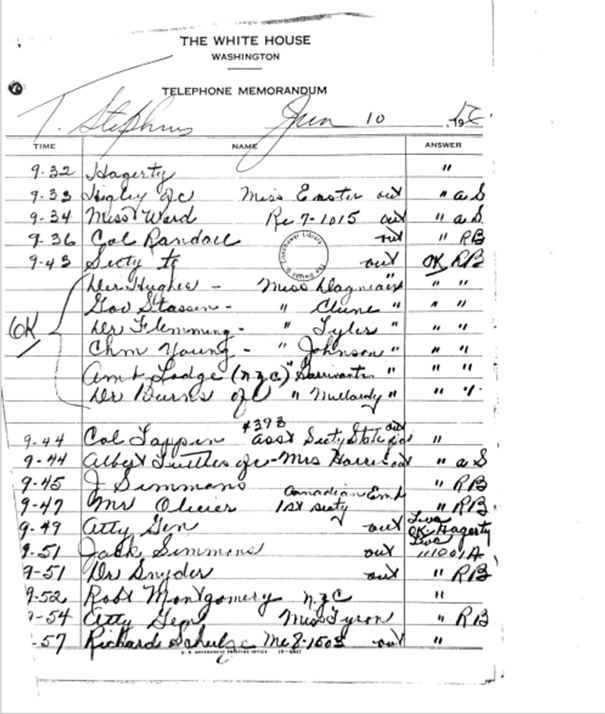 THE WHITE HOUSE
WASHINGTON
TELEPHONE MEMORANDUM
T. Stephens Jun 10
TIME NAME ANSWER
9-32 Hagerty "
9-33 Higley ofc Miss out " a S
9-34 Miss Ward Re 7-1015 out " a S
9-36 Col Randall out " RB
9-43 Secty to out OK RB
Dir Hughes - Miss " " "
Gov Stassen - " Clune " " "
OK Dr Flemming - " Tyler " " "
Chm Young - " Johnson " " "
Amb Lodge (nyc) " " " "
Dr Burns ofc " " " "
#393 out
9-44 Col Tappin asst Secty State "
9-44 Tuttles ofc - Mrs out " a S
9-45 J Simmons " RB
Canadian Emb
9-47 Mr 1st Secty " RB
9-49 Atty Gen out OK Hagerty
9-51 Jack Simmons out
9-51 Dr Snyder out " RB
9-52 Robt Montgomery nyc "
9-54 Atty Gen Miss Tyson " RB
-57 Richard Me 8-1503 out "
U. S. GOVERNMENT PRINTING OFFICE
Eisenhower Library